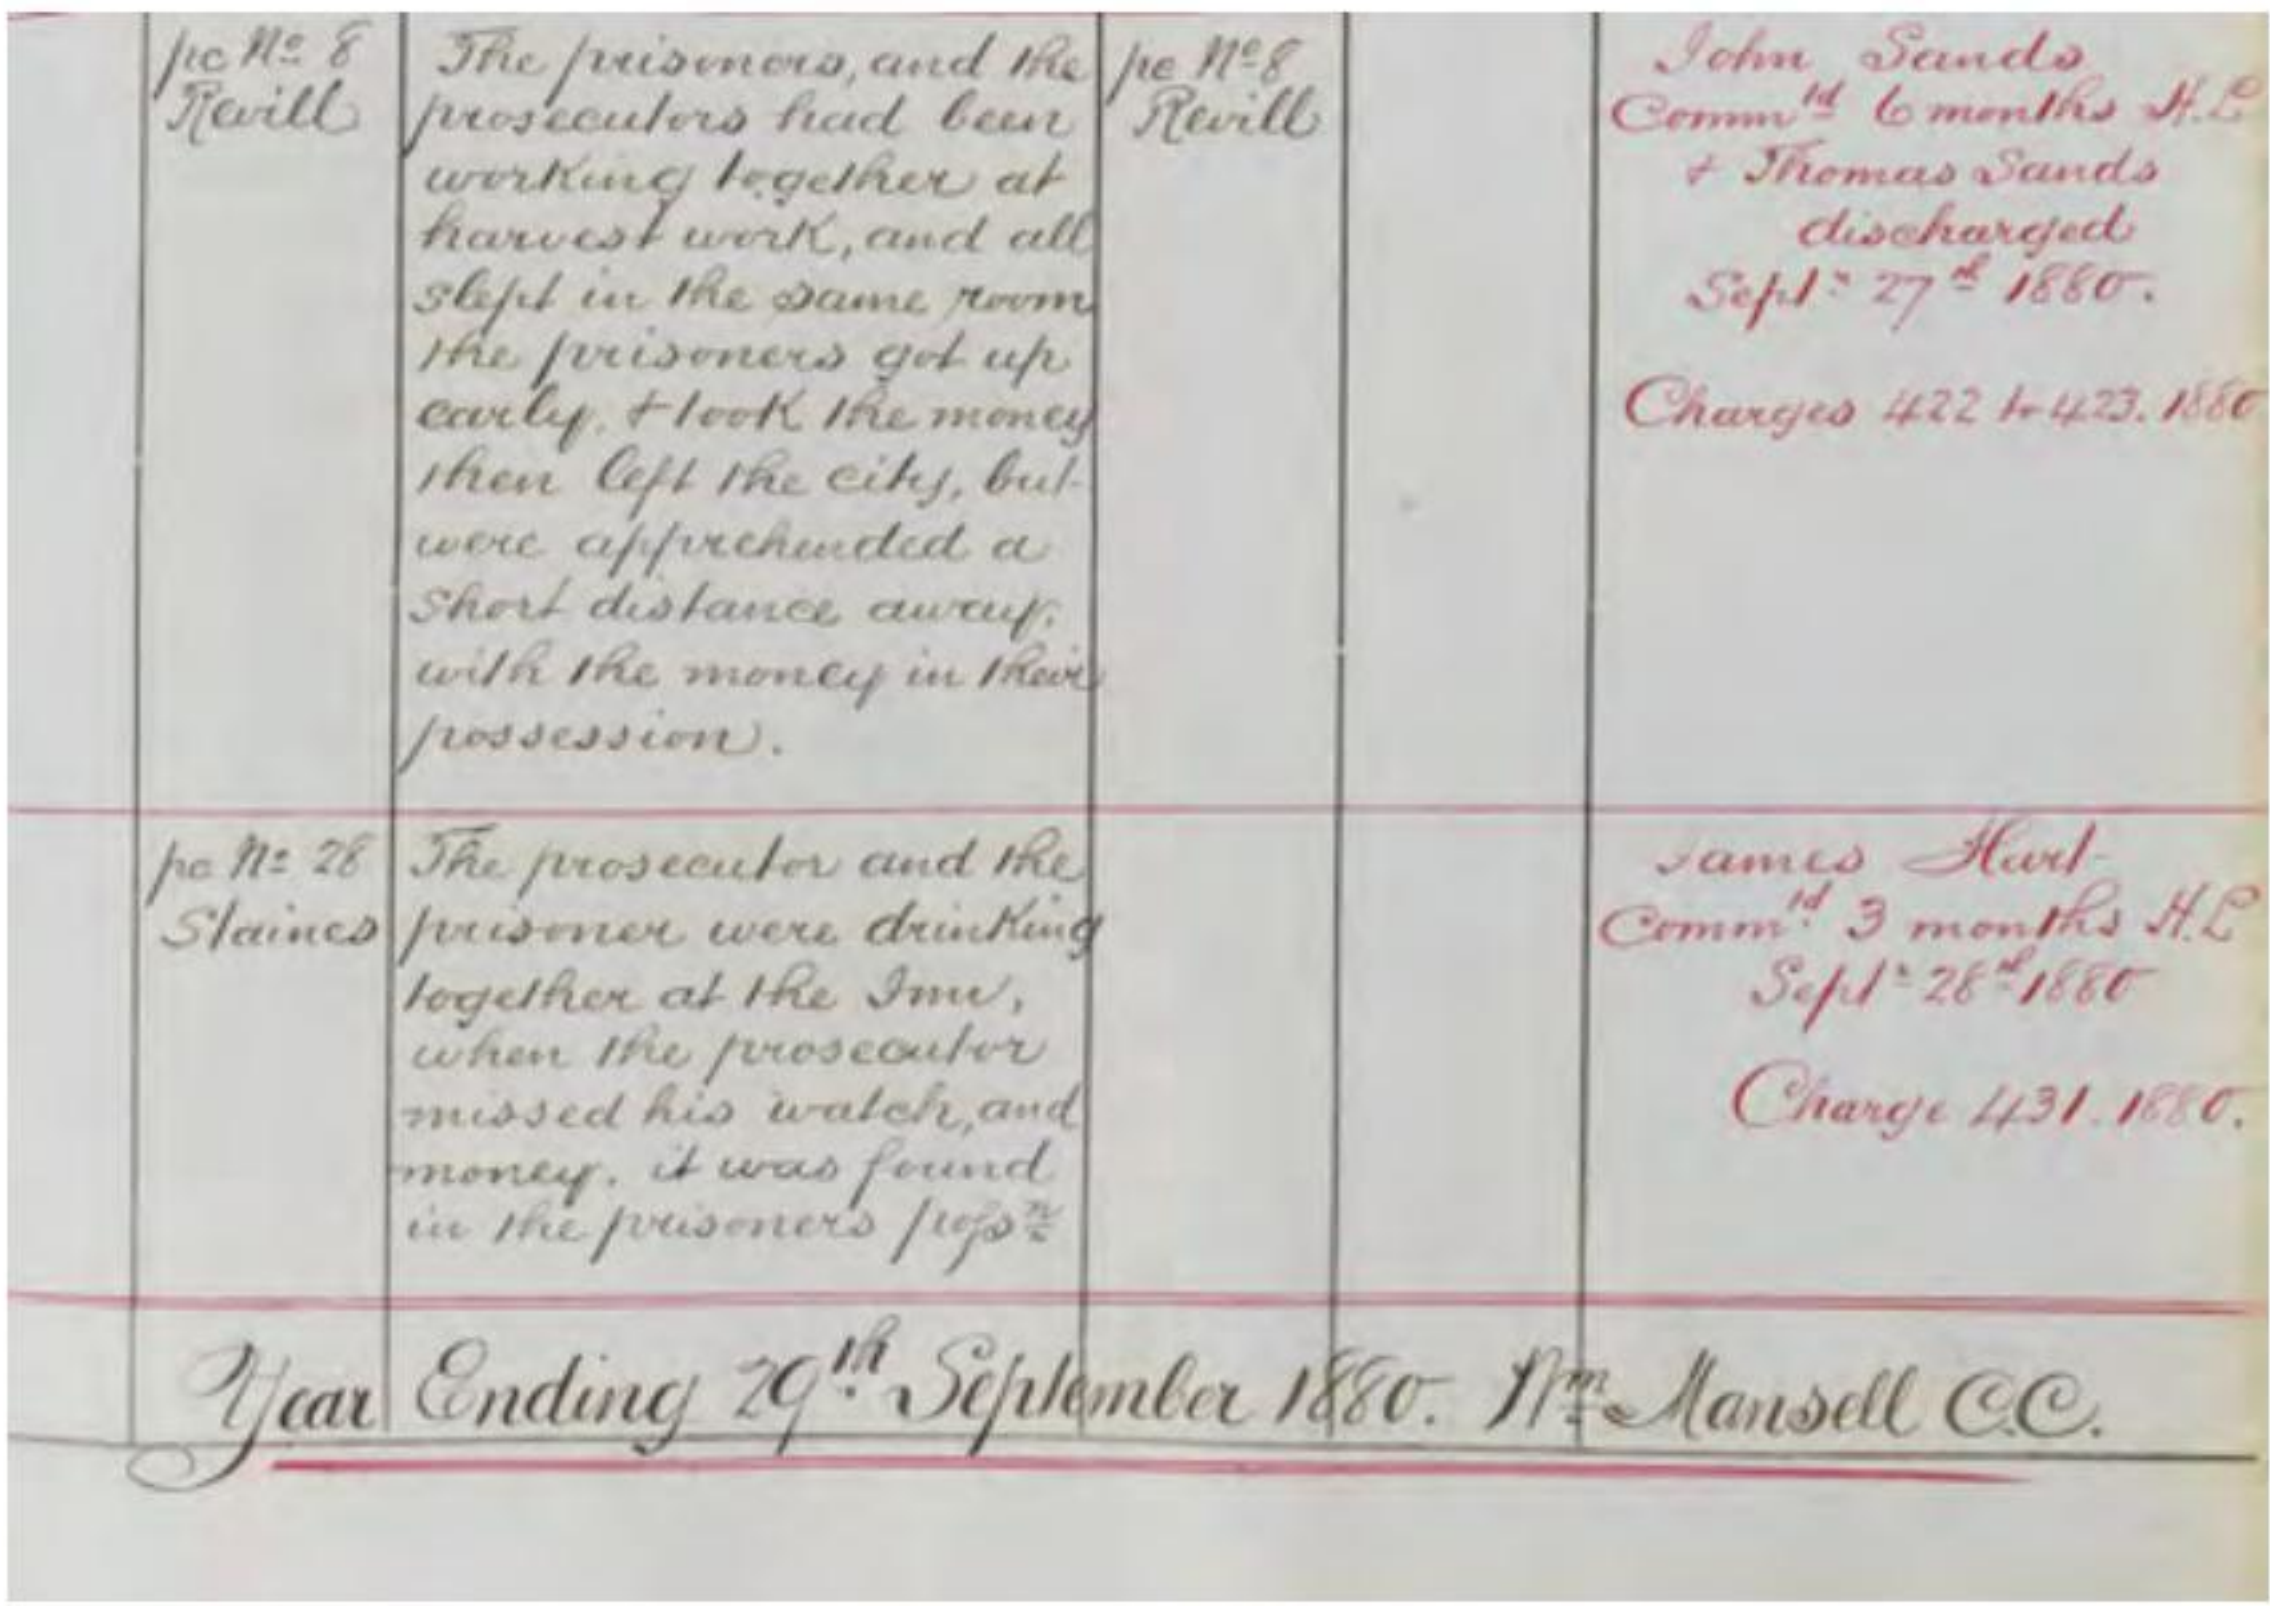 pc No 8
Revill
The prisoners, and the
prosecutors had been
working together at
harvest work, and all
slept in the same room
the prisoners got up
early. & took the money
then left the city, but
were apprehended a
short distance away.
with the money in their
possession.
pc No 8
Revill
John Sands
Commtd 6 months H.L
& Thomas Sands
discharged
Septr 27th 1880.
Charges 422 to 423. 1880
pc No 28
Staines
The prosecutor and the
prisoner were drinking
together at the Inn,
when the prosecutor
missed his watch, and
money. it was found
in the prisoners possn
James Hart
Commtd 3 months H.L
Septr 28th 1880
Charge 431. 1880.
Year Ending 29th September 1880. Wm Mansell C.C.